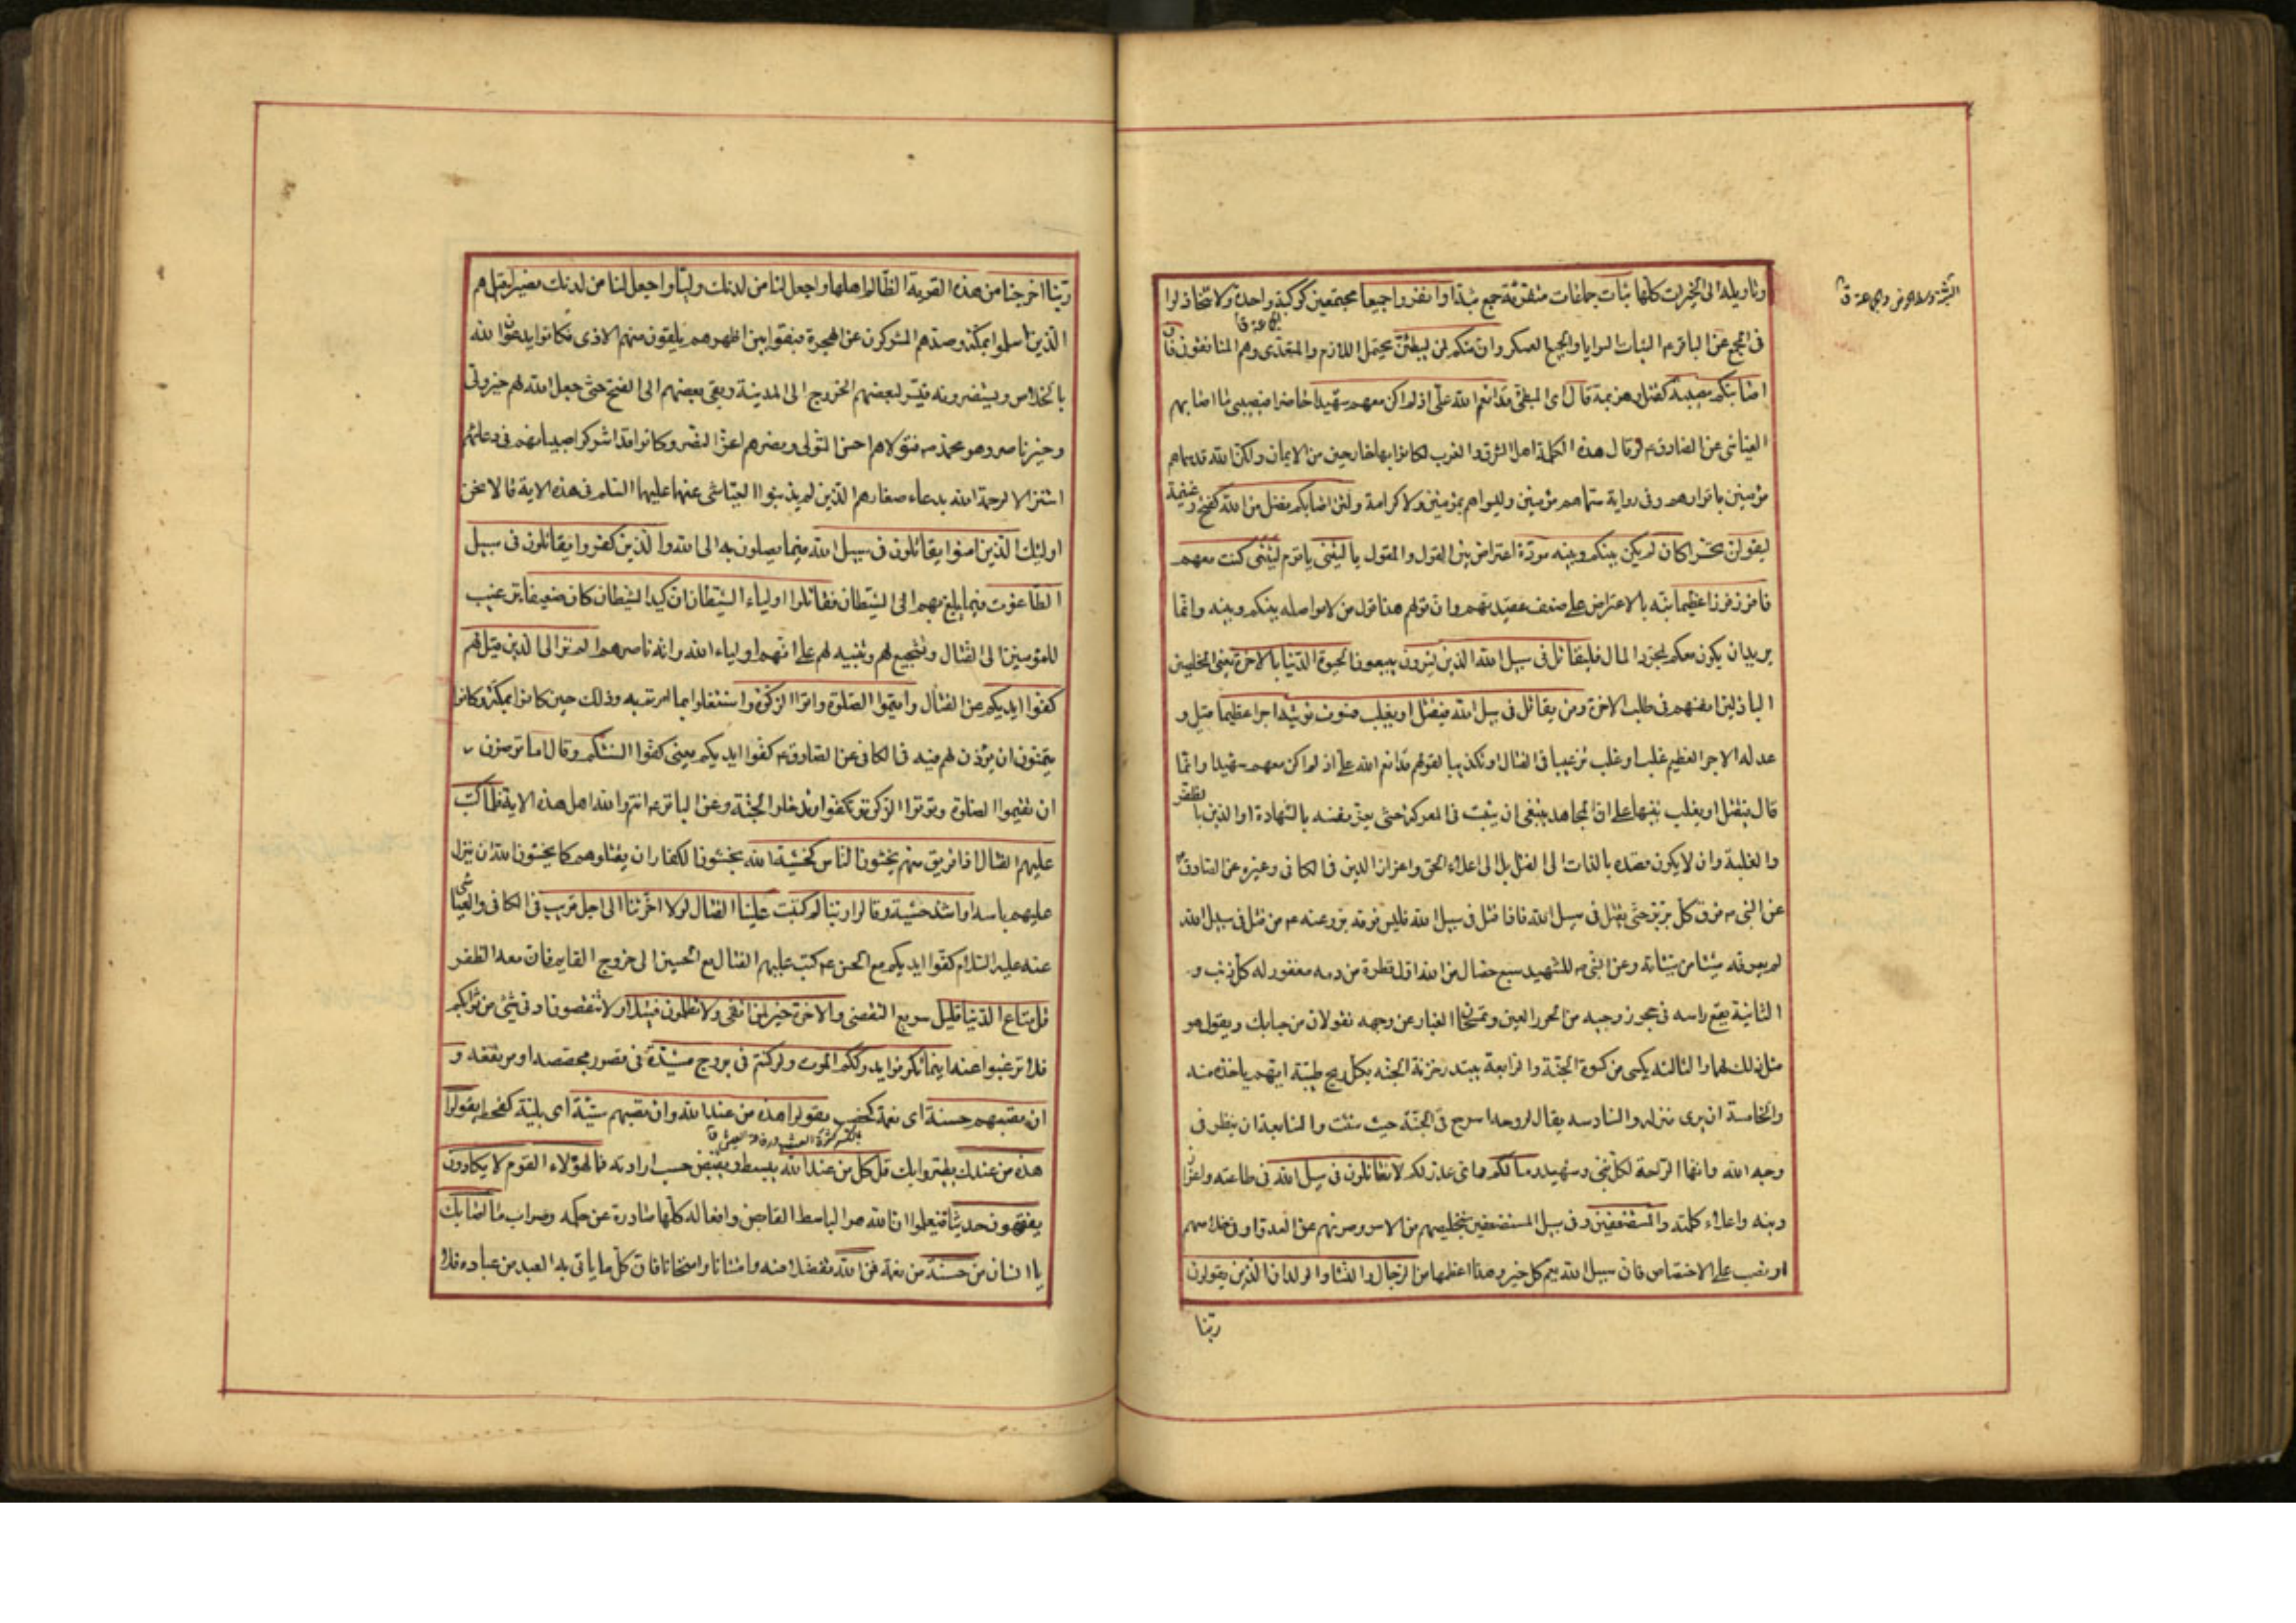 وتاويله الى الخيرات كلها ثبات جماعات متفرقة جمع ثبة او انفروا جميعا مجتمعين كوكبة واحدة ولا تتخاذلوا
فى المجمع عن الباقر م الثبات السرايا والجميع العسكر وان منكم لمن ليبطئن يحتمل اللازم والمتعدى وهم المنافقون فان
اصابتكم مصيبة كقتل وهزيمة قال اى المبطئ قد انعم الله على اذ لم اكن معهم شهيدا حاضرا فيصيبنى ما اصابهم
العياشى عن الصادق م لو قال هذه الكلمة اهل الشرق والغرب لكانوا بها خارجين من الايمان ولكن الله قد سماهم
مؤمنين باقرارهم وفى رواية سماهم مؤمنين وليسوا هم بمؤمنين ولا كرامة ولئن اصابكم فضل من الله كفتح وغنيمة
ليقولن تحسرا كان لم يكن بينكم وبينه مودة اعتراض بين القول والمقول يا ليتنى يا قوم ليتنى كنت معهم
فافوز فوزا عظيما نبّه بالاعتراض على ضعف عقيدتهم وان قولهم هذا قول من لا مواصلة بينكم وبينه وانما
يريد ان يكون معكم لمجرد المال فليقاتل فى سبيل الله الذين يشرون يبيعون الحيوة الدنيا بالاخرة يعنى المخلصين
الباذلين انفسهم فى طلب الاخرة ومن يقاتل فى سبيل الله فيقتل او يغلب فسوف نؤتيه اجرا عظيما قيل و
عد له الاجر العظيم غلب او غلب ترغيبا فى القتال او تكذيبا لقولهم قد انعم الله على اذ لم اكن معهم شهيدا وانما
قال فيقتل او يغلب تنبيها على ان المجاهد ينبغى ان يثبت فى المعركة حتى يعز نفسه بالشهادة او الدين بالظفر
والغلبة وان لا يكون قصده بالذات الى القتل بل الى اعلاء الحق واعزاز الدين فى الكافى وغيره عن الصادق
عن النبى م فوق كل بر بر حتى يقتل فى سبيل الله فاذا قتل فى سبيل الله فليس فوقه بر وعنه م من قتل فى سبيل الله
لم يعرفه شيئا من سيئاته وعن النبى م للشهيد سبع خصال من الله اول قطرة من دمه مغفور له كل ذنب و
الثانية يقع راسه فى حجر زوجيه من الحور العين وتمسحان الغبار عن وجهه تقولان مرحبا بك ويقول هو
مثل ذلك لهما والثالثة يكسى من كسوة الجنة والرابعة يبتدر خزنة الجنة بكل ريح طيبة ايهم ياخذه منه
والخامسة ان يرى منزله والسادسة يقال لروحه اسرح فى الجنة حيث شئت والسابعة ان ينظر فى
وجه الله وانها الراحة لكل نبى وشهيد وما لكم واى عذر لكم لا تقاتلون فى سبيل الله فى طاعته واعزاز
دينه واعلاء كلمته والمستضعفين وفى سبيل المستضعفين بتخليصهم من الاسر وصونهم عن العدو او فى خلاصهم
او نصب على الاختصاص فان سبيل الله يعم كل خير وهذا اعظمها من الرجال والنساء والولدان الذين يقولون
ربنا
ربنا اخرجنا من هذه القرية الظالم اهلها واجعل لنا من لدنك وليا واجعل لنا من لدنك نصيرا قيل هم
الذين اسلموا بمكة وصدهم المشركون عن الهجرة فبقوا بين اظهرهم يلقون منهم الاذى فكانوا يدعون الله
بالخلاص ويستنصرونه فيسر لبعضهم الخروج الى المدينة وبقى بعضهم الى الفتح حتى جعل الله لهم خير ولى
وخير ناصر وهو محمد ص فتولاهم احسن التولى ونصرهم اعز النصر وكانوا قد اشركوا صبيانهم فى دعائهم
استنزالا لرحمة الله بدعاء صغارهم الذين لم يذنبوا العياشى عنهما عليهما السلم فى هذه الاية قالا نحن
اولئك الذين امنوا يقاتلون فى سبيل الله فيما يصلون به الى الله والذين كفروا يقاتلون فى سبيل
الطاغوت فيما يبلغ بهم الى الشيطان فقاتلوا اولياء الشيطان ان كيد الشيطان كان ضعيفا ترغيب
للمؤمنين الى القتال وتشجيع لهم وتنبيه لهم على انهم اولياء الله وانه ناصرهم الم تر الى الذين قيل لهم
كفوا ايديكم عن القتال واقيموا الصلوة واتوا الزكوة واشتغلوا بما امرتم به وذلك حين كانوا بمكة وكانوا
يتمنون ان يؤذن لهم فيه فى الكافى عن الصادق م كفوا ايديكم يعنى كفوا السنتكم وقال اما ترضون
ان تقيموا الصلوة وتؤتوا الزكوة وتكفوا وتدخلوا الجنة وعن الباقر م انتم والله اهل هذه الاية فلما كتب
عليهم القتال اذا فريق منهم يخشون الناس كخشية الله يخشون الكفار ان يقتلوهم كما يخشون الله ان ينزل
عليهم باسه او اشد خشية وقالوا ربنا لم كتبت علينا القتال لولا اخرتنا الى اجل قريب فى الكافى والعياشى
عنه عليه السلام كفوا ايديكم مع الحسن م كتب عليهم القتال مع الحسين الى خروج القايم فان معه الظفر
قل متاع الدنيا قليل سريع التقضى والاخرة خير لمن اتقى ولا تظلمون فتيلا ولا تنقصون ادنى شئ من ثوابكم
فلا ترغبوا عنه اينما تكونوا يدرككم الموت ولو كنتم فى بروج مشيدة فى قصور مجصصة او مرتفعة و
ان تصبهم حسنة اى نعمة كخصب يقولوا هذه من عند الله وان تصبهم سيئة اى بلية كقحط يقولوا
هذه من عندك يطيروا بك قل كل من عند الله يبسط ويقبض حسب ارادته فما لهؤلاء القوم لا يكادون
يفقهون حديثا فيعلموا ان الله هو الباسط القابض وافعاله كلها صادرة عن حكمة وصواب ما اصابك
يا انسان من حسنة من نعمة فمن الله تفضلا منه وامتنانا وامتحانا فان كل ما ياتى به العبد من عباده فلا